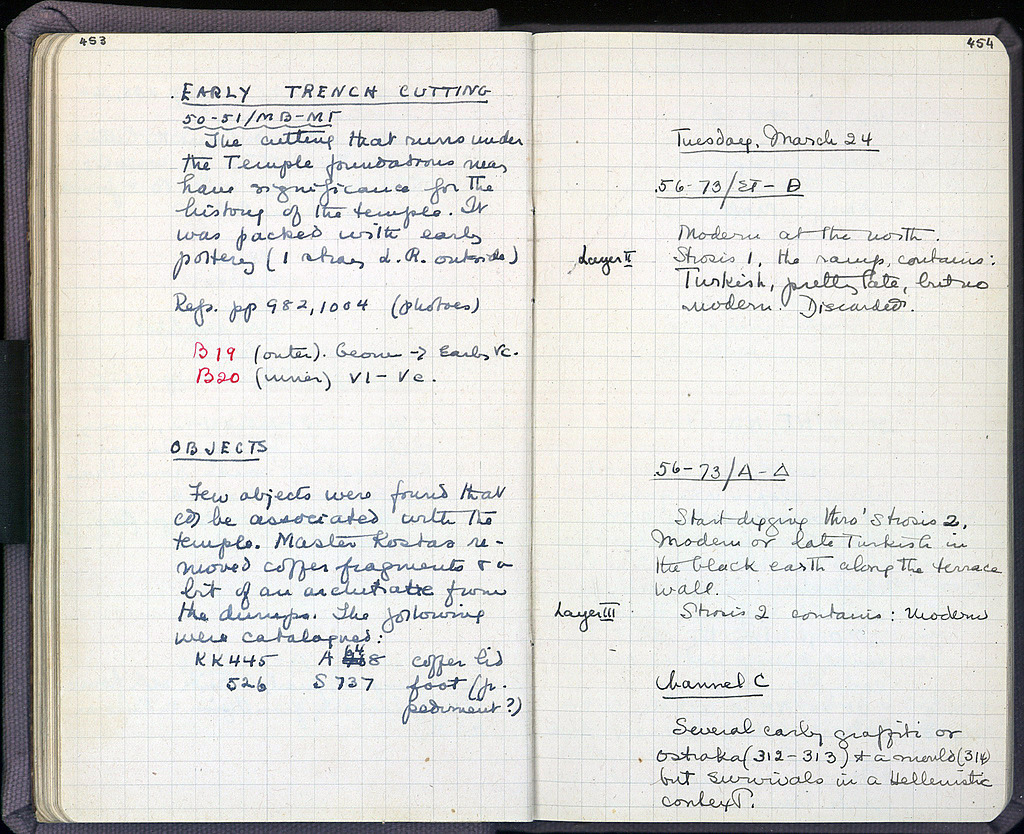 453
EARLY TRENCH CUTTING
50-51/ΜΒ-ΜΓ
The cutting that runs under
the Temple foundations may
have significance for the
history of the temple. It
was packed with early
pottery (1 stray L.R. outside)
Refs. pp 982, 1004 (photoes)
B19 (outer). Geom → Early Vc.
B20 (inner) VI - Vc.
OBJECTS
Few objects were found that
cd be associated with the
temple. Master Kostas re-
moved coffer fragments & a
bit of an architrave from
the dumps. The following
were catalogued:
KK445 A 8 coffer lid
526 S 737 foot (fr.
pediment?)
454
Tuesday, March 24
56-73/ΣΤ-Θ
Modern at the north.
Layer II Strosis 1, the ramp, contains:
Turkish, pretty late, but no
modern. Discarded.
56-73/Α-Δ
Start digging thro' Strosis 2,
Modern or late Turkish in
the black earth along the terrace
wall.
Layer III Strosis 2 contains: Modern
Channel C
Several early graffiti or
ostraka (312-313) & a mould (314)
but survivals in a Hellenistic
context.